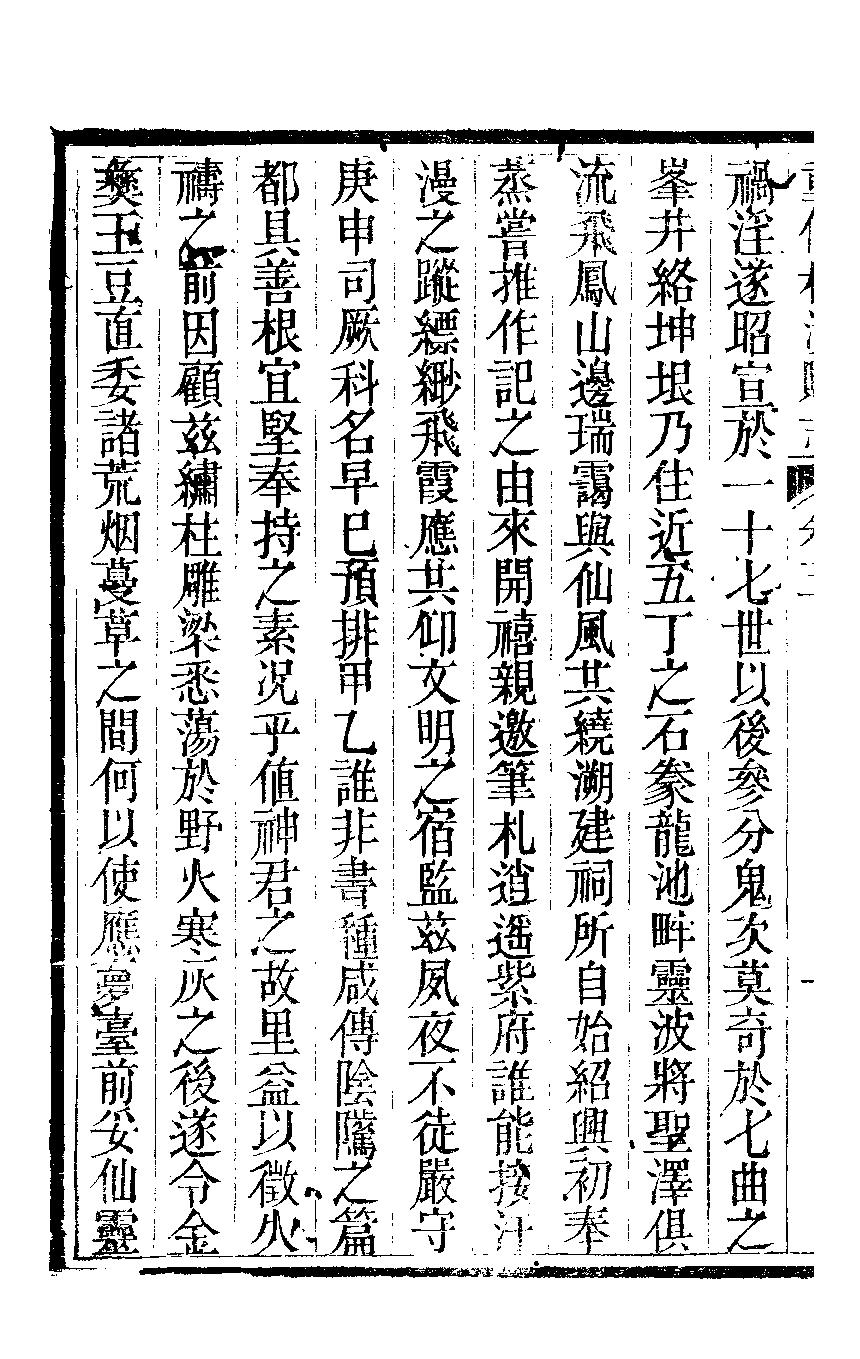 禍淫遂昭宣於一十七世以後參分鬼次莫奇於七曲之
峯井絡坤垠乃住近五丁之石豢龍池畔靈波將聖澤俱
流飛鳳山邊瑞靄與仙風共繞溯建祠所自始紹興初奉
蒸嘗推作記之由來開禧親邀筆札逍遥紫府誰能按汗
漫之蹤縹緲飛霞應共仰文明之宿監兹夙夜不徒嚴守
庚申司厥科名早已預排甲乙誰非書種咸傳陰騭之篇
都具善根宜堅奉持之素况乎値神君之故里益以徵火
禱之前因顧兹繡柱雕梁悉蕩於野火寒灰之後遂令金
彝玉豆直委諸荒烟蔓草之間何以使應夢臺前妥仙靈